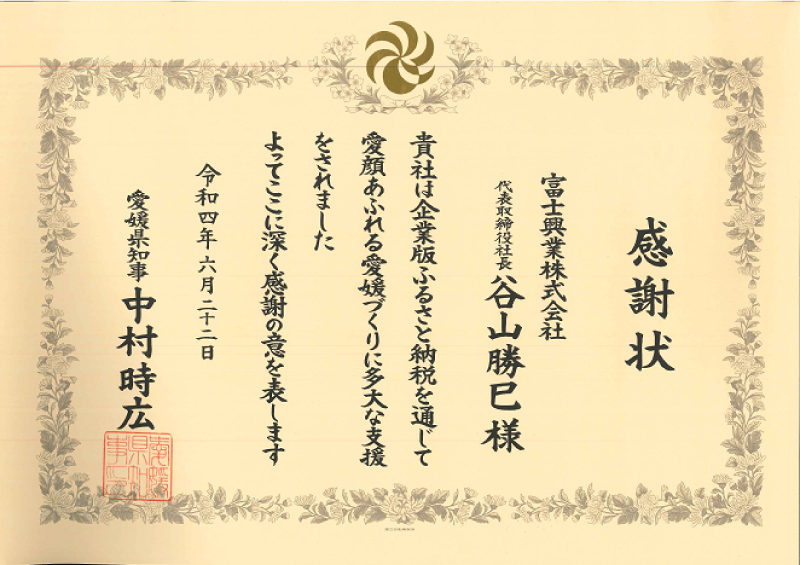 感謝状
富士興業株式会社
代表取締役社長 谷山勝巳様
貴社は企業版ふるさと納税を通じて
愛顔あふれる愛媛づくりに多大な支援
をされました
よってここに深く感謝の意を表します
令和四年六月二十二日
愛媛県知事 中村時広